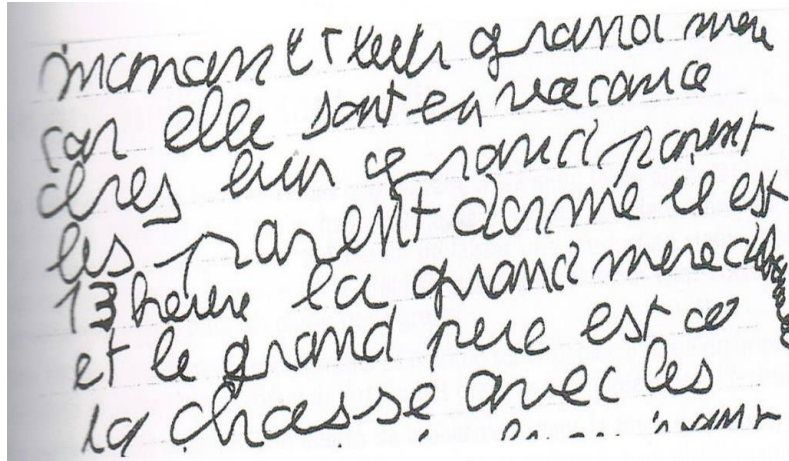 maman et leur grand mere
car elle sont en vacance
ches leur grand parent
les parent dorme il est
13 heure la grand mere
et le grand pere est a
la chasse avec les